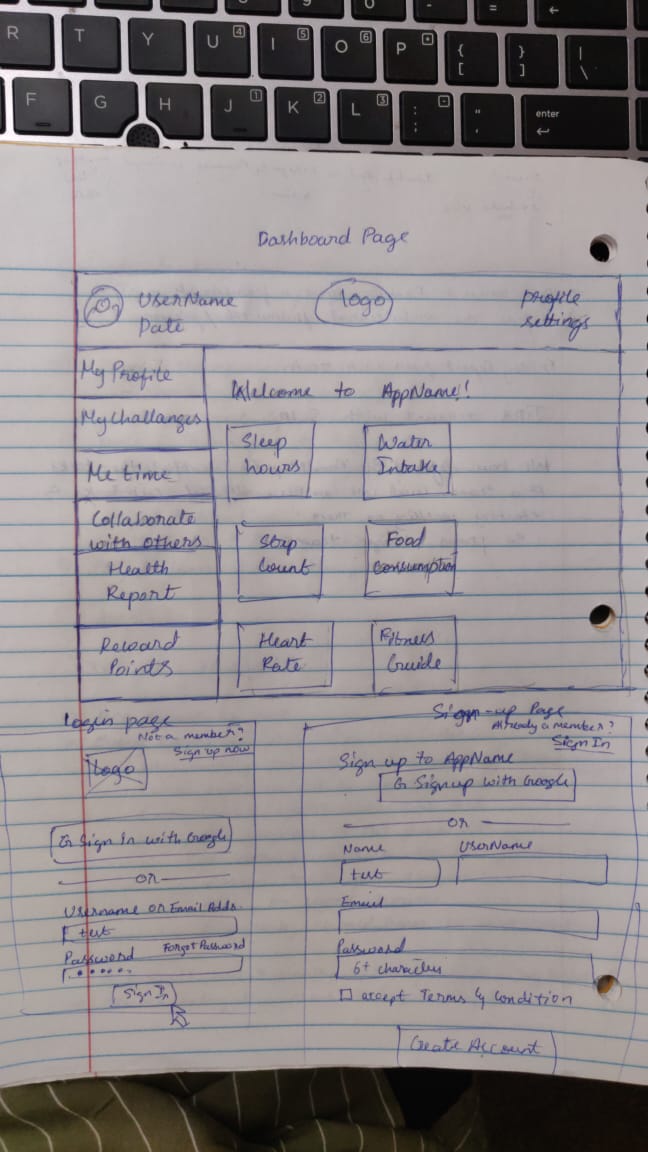 R T Y U 4 I 5 O 6 P * { [ } ] | \
F G H J 1 K 2 L 3 : ; - " ' enter
Dashboard Page
UserName
Date
logo
profile
settings
My Profile
My Challanges
Me time
Collaborate
with others
Health
Report
Reward
Points
Welcome to AppName!
Sleep
hours
Water
Intake
Step
Count
Food
consumption
Heart
Rate
Fitness
Guide
login page
Not a member?
Sign up now
logo
G Sign In with Google
OR
Username or Email Addr.
text
Password Forgot Password
Sign In
Sign-up Page
Already a member?
Sign In
Sign up to AppName
G Signup with Google
OR
Name UserName
text
Email
Password
6+ characters
accept Terms & Condition
Create Account